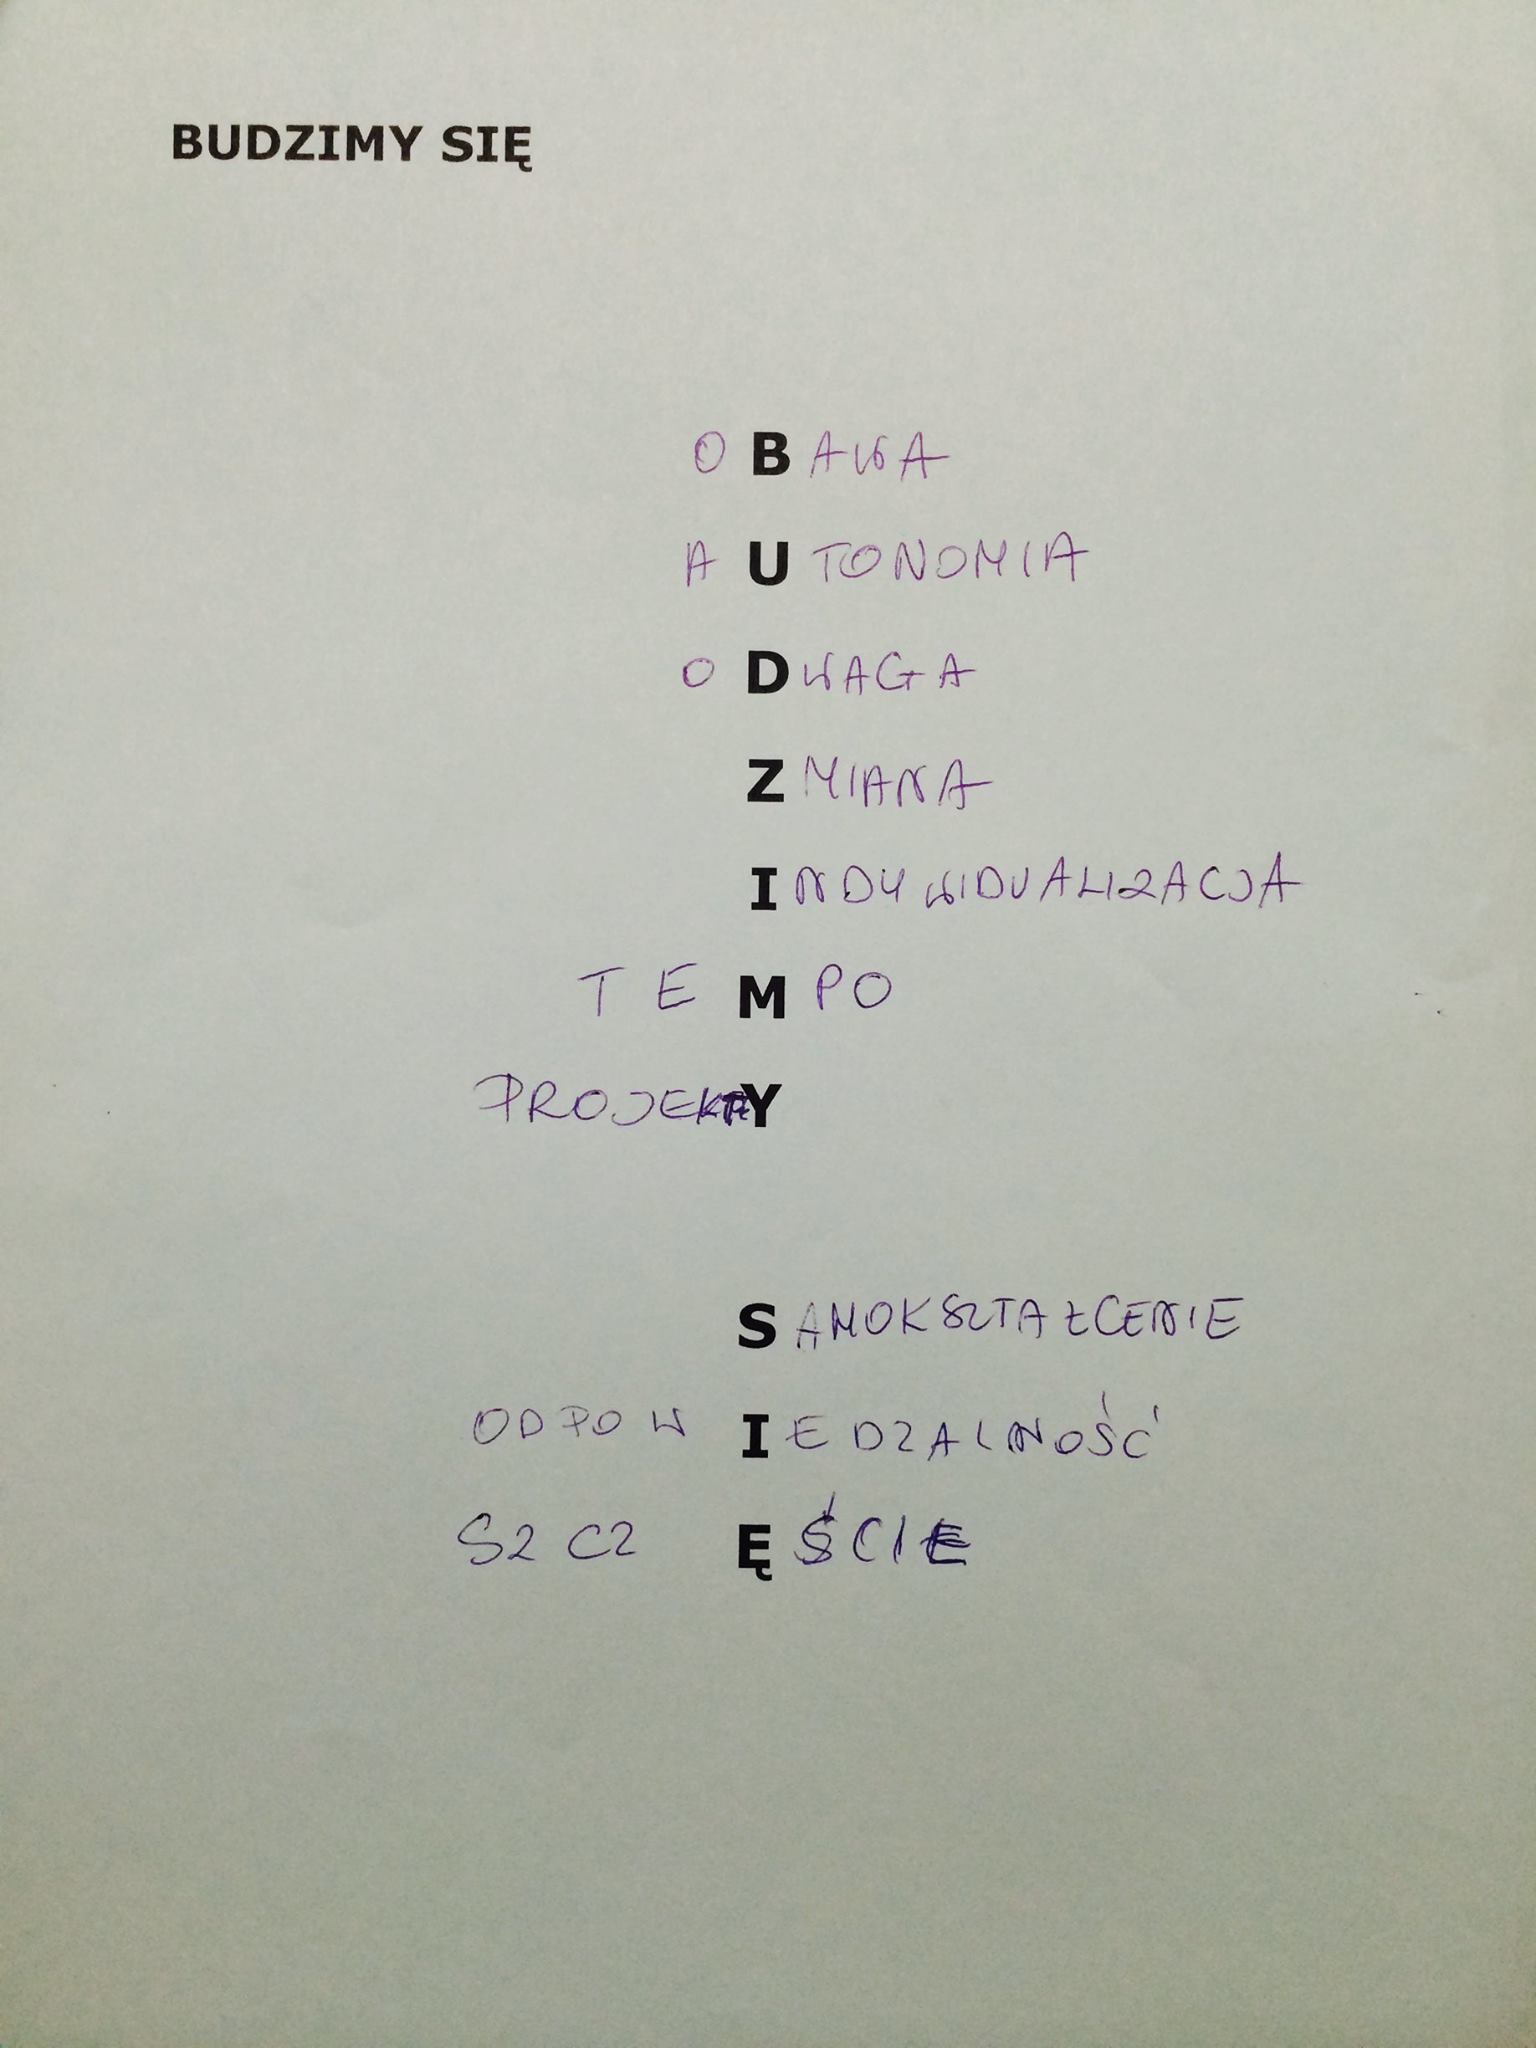 BUDZIMY SIĘ
OBAWA
AUTONOMIA
ODWAGA
ZMIANA
INDYWIDUALIZACJA
TEMPO
PROJEKTY
SAMOKSZTAŁCENIE
ODPOWIEDZALNOŚĆ
SZCZĘŚCIE